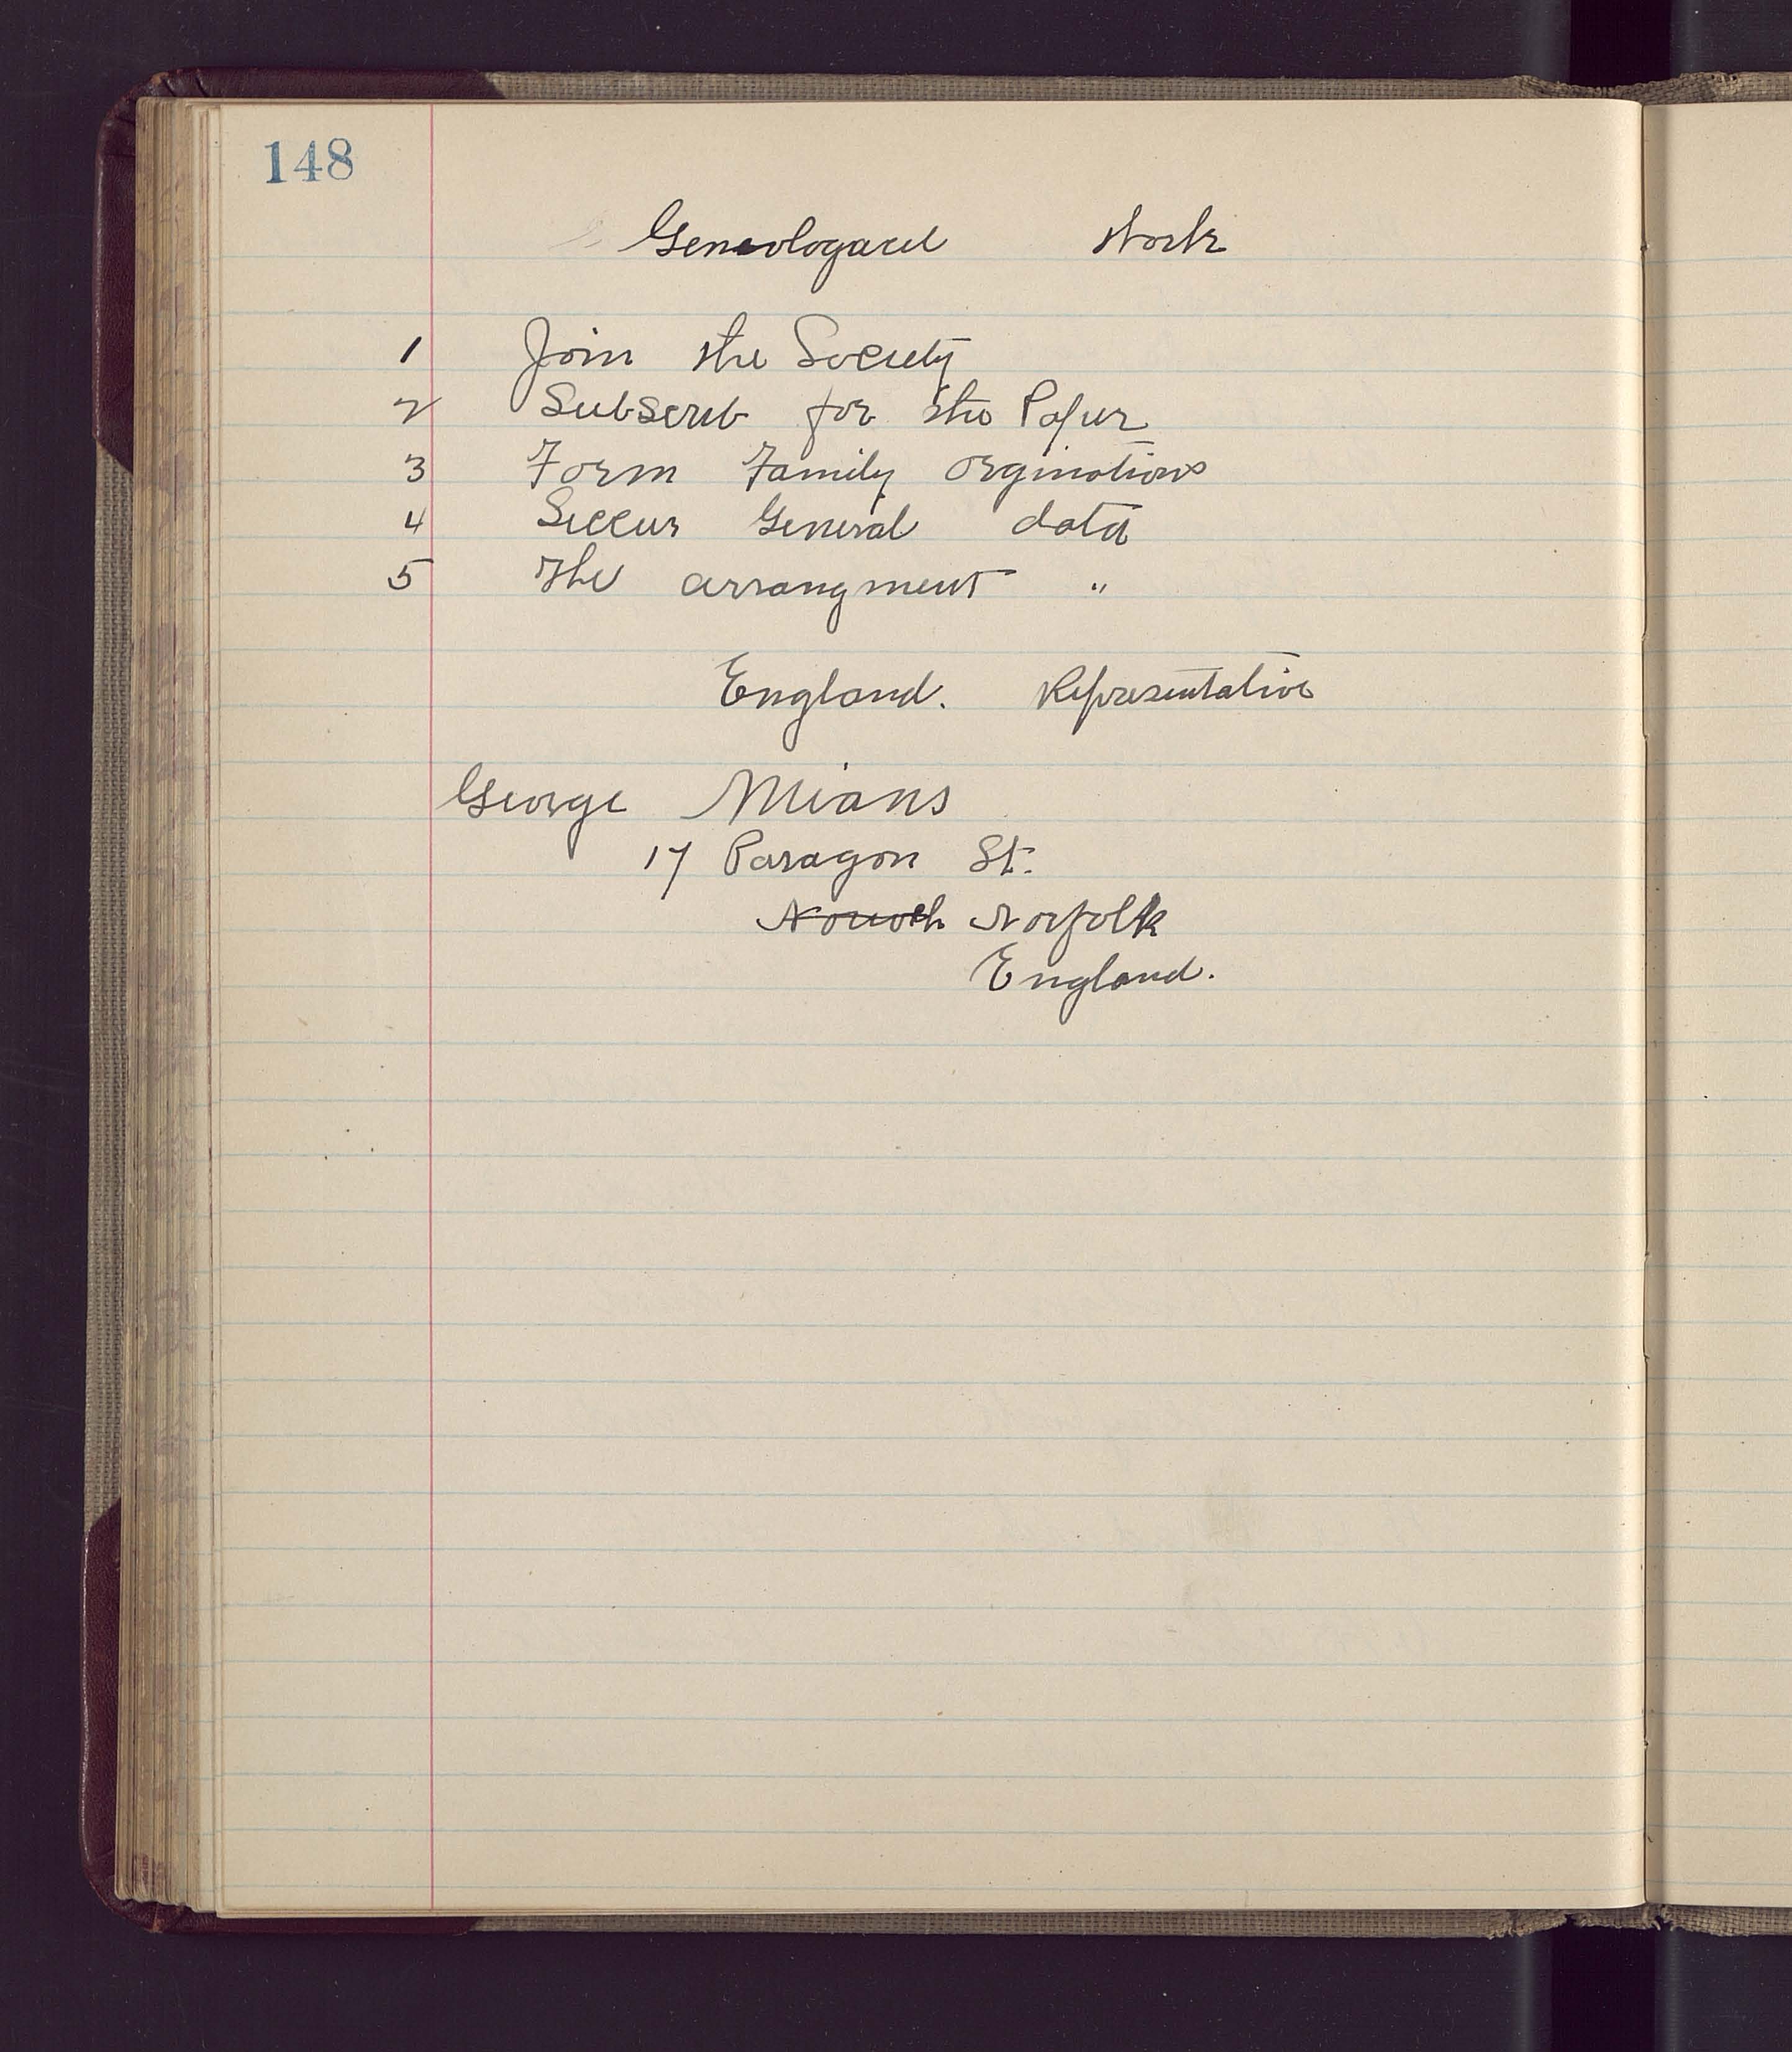 148
Genealogacel Work
1 Join the Society
2 Subscrib for the Paper
3 Form Family Orginations
4 Seccur General data
5 The arrangment "
England. Representative
George Mians
17 Paragon St.
Norwich Norfolk
England.